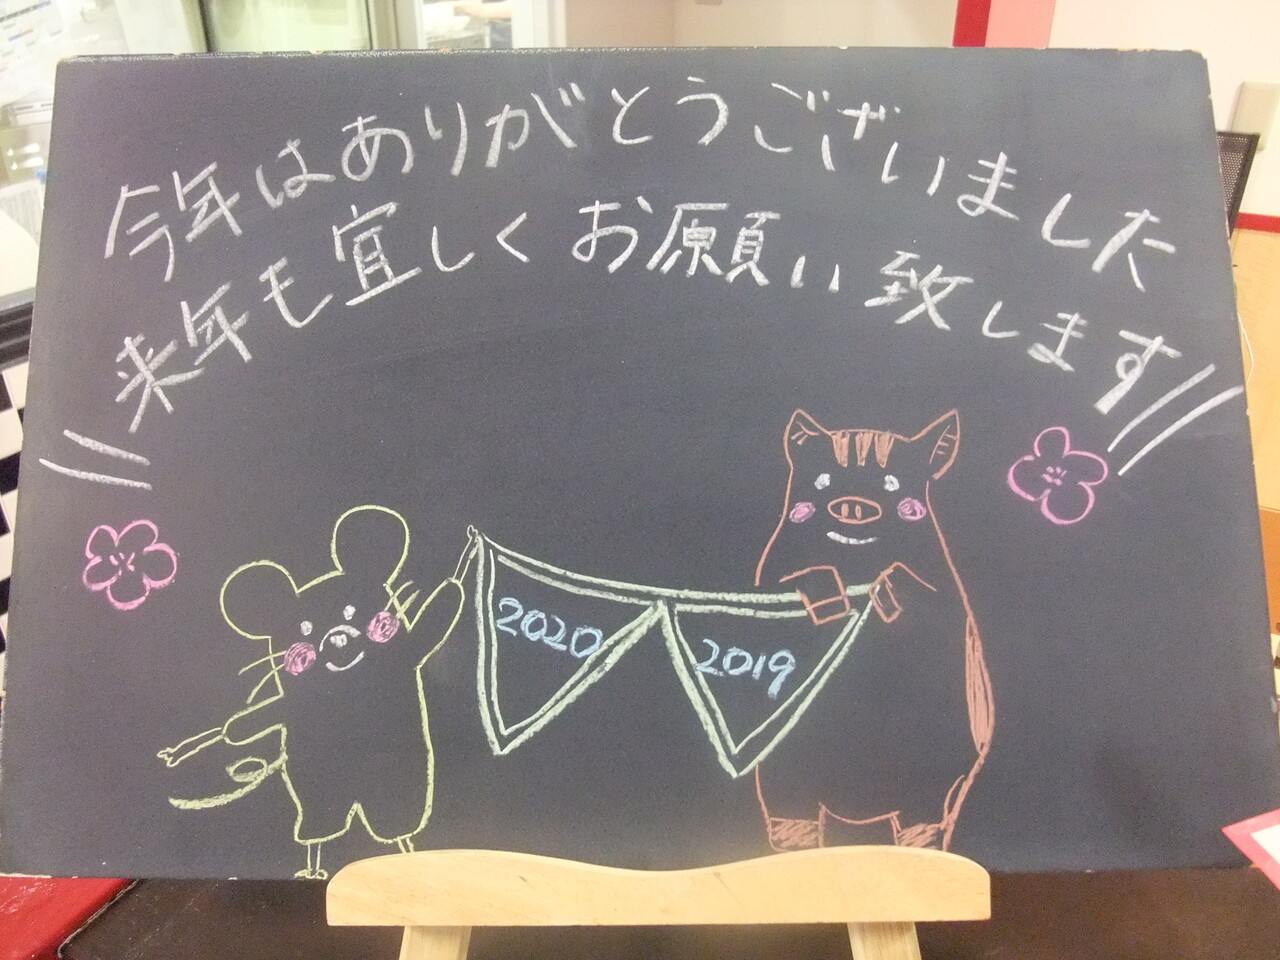 今年はありがとうございました
来年も宜しくお願い致します
2020 2019